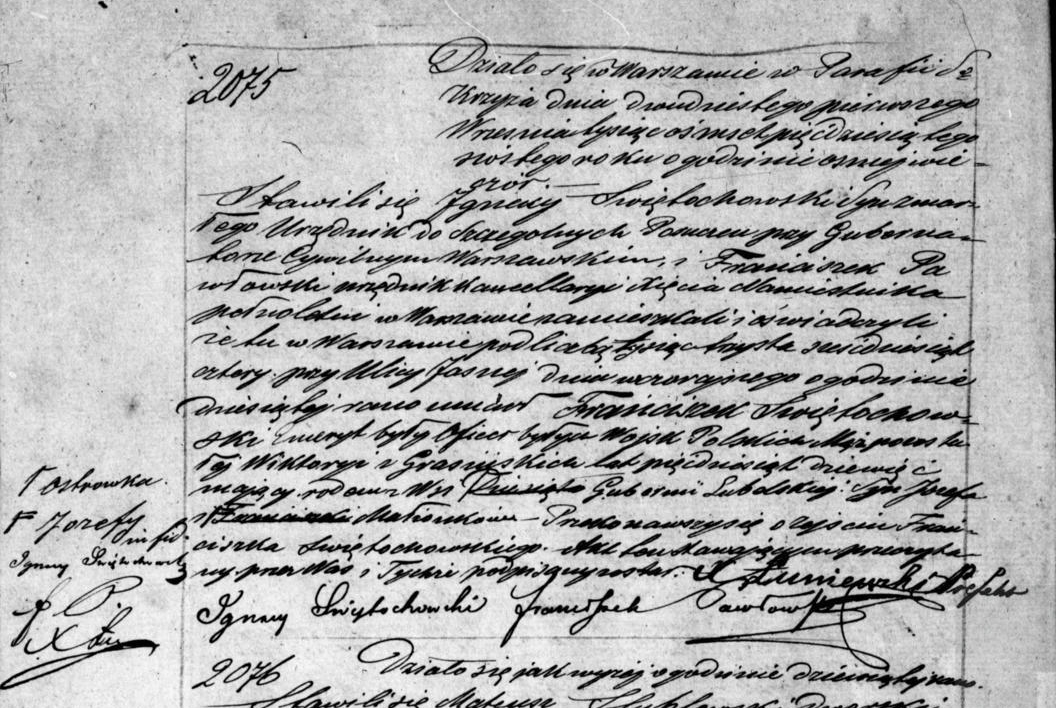 2075
Działo się w Warszawie w Parafii Sgo
Krzyża dnia dwudziestego pierwszego
Września tysiąc ośmset pięćdziesiątego
szóstego roku o godzinie ósmej wie-
czór. —
Stawili się Ignacy Świętochowski Syn zmar-
łego Urzędnik do Szczególnych Poruczeń przy Guberna-
torze Cywilnym Warszawskim, i Franciszek Pa
włowski urzędnik Kancellaryi Xięcia Namiestnika
pełnoletni w Warszawie zamieszkali i oświadczyli
że tu w Warszawie pod liczbą tysiąc trzysta sześćdziesiąt
cztery przy Ulicy Jasnej dnia wczorajszego o godzinie
dziesiątej rano umarł Franciszek Świętochow-
ski Emeryt były Oficer byłych Wojsk Polskich Mąż pozosta
łej Wiktoryi z lat pięćdziesiąt dziewięć
mający rodem z Wsi Gubernii Lubelskiej Syn Józefa
i Franciszki Małżonków — Przekonawszy się o zejściu Fran-
ciszka Świętochowskiego. Akt ten stawającym przeczyta
ny przez Nas i Tychże podpisany został. X Łuniewski Prefekt
Ignacy Świętochowski Franciszek Pawłowski
Γ Ostrówka
F Józefy
Ignacy Świętochowski
2076
Działo się jak wyżej o godzinie dziesiątej rano.
Stawili się Mateusz